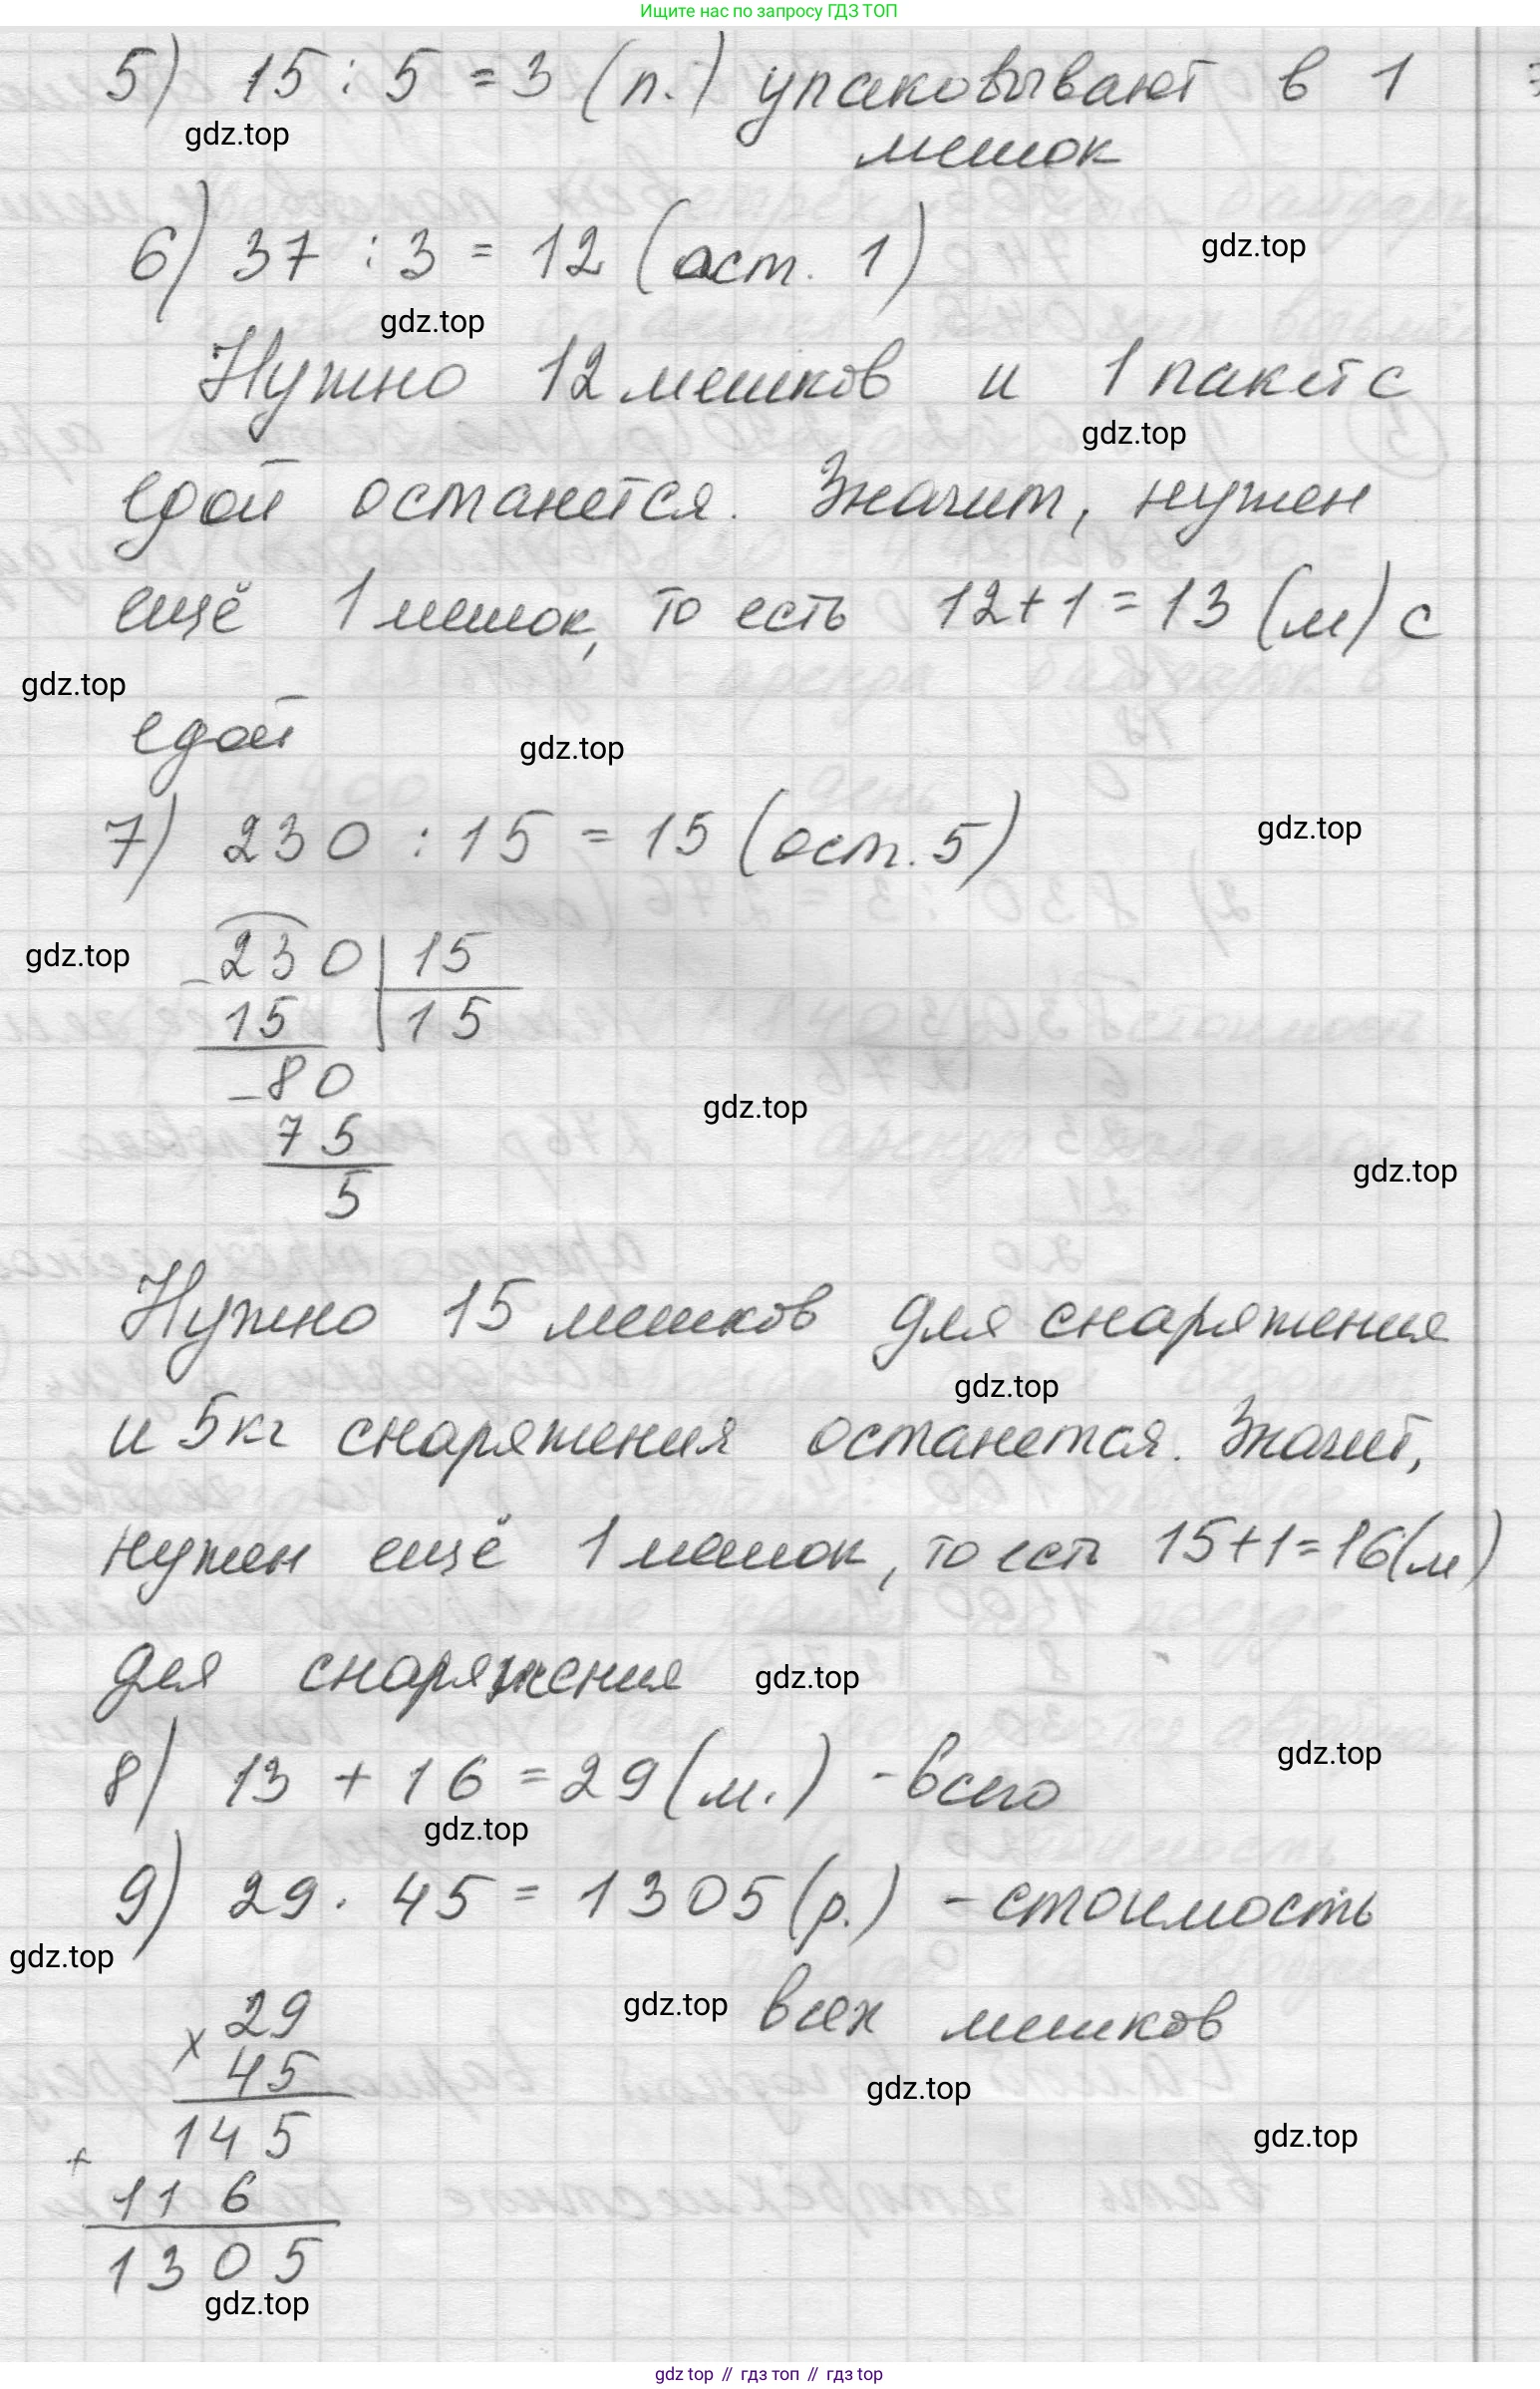 Ищите нас по запросу ГДЗ ТОП
5) 15 : 5 = 3 (п.) упаковывают в 1
gdz.top
мешок
6) 37 : 3 = 12 (ост. 1)
gdz.top
gdz.top
Нужно 12 мешков и 1 пакет с
gdz.top
едой останется. Значит, нужен
ещё 1 мешок, то есть 12+1=13 (м) с
gdz.top
едой
gdz.top
7) 230 : 15 = 15 (ост. 5)
gdz.top
gdz.top
- 230 | 15
15 | 15
- 80
75
gdz.top
gdz.top
5
Нужно 15 мешков для снаряжения
gdz.top
и 5кг снаряжения останется. Значит,
нужен ещё 1 мешок, то есть 15+1=16(м)
для снаряжения
gdz.top
8) 13 + 16 = 29 (м.) - всего
gdz.top
gdz.top
9) 29 · 45 = 1305 (р.) - стоимость
gdz.top
всех мешков
gdz.top
x 29
45
gdz.top
145
gdz.top
+
116
1305
gdz.top
gdz top // гдз топ // гдз top